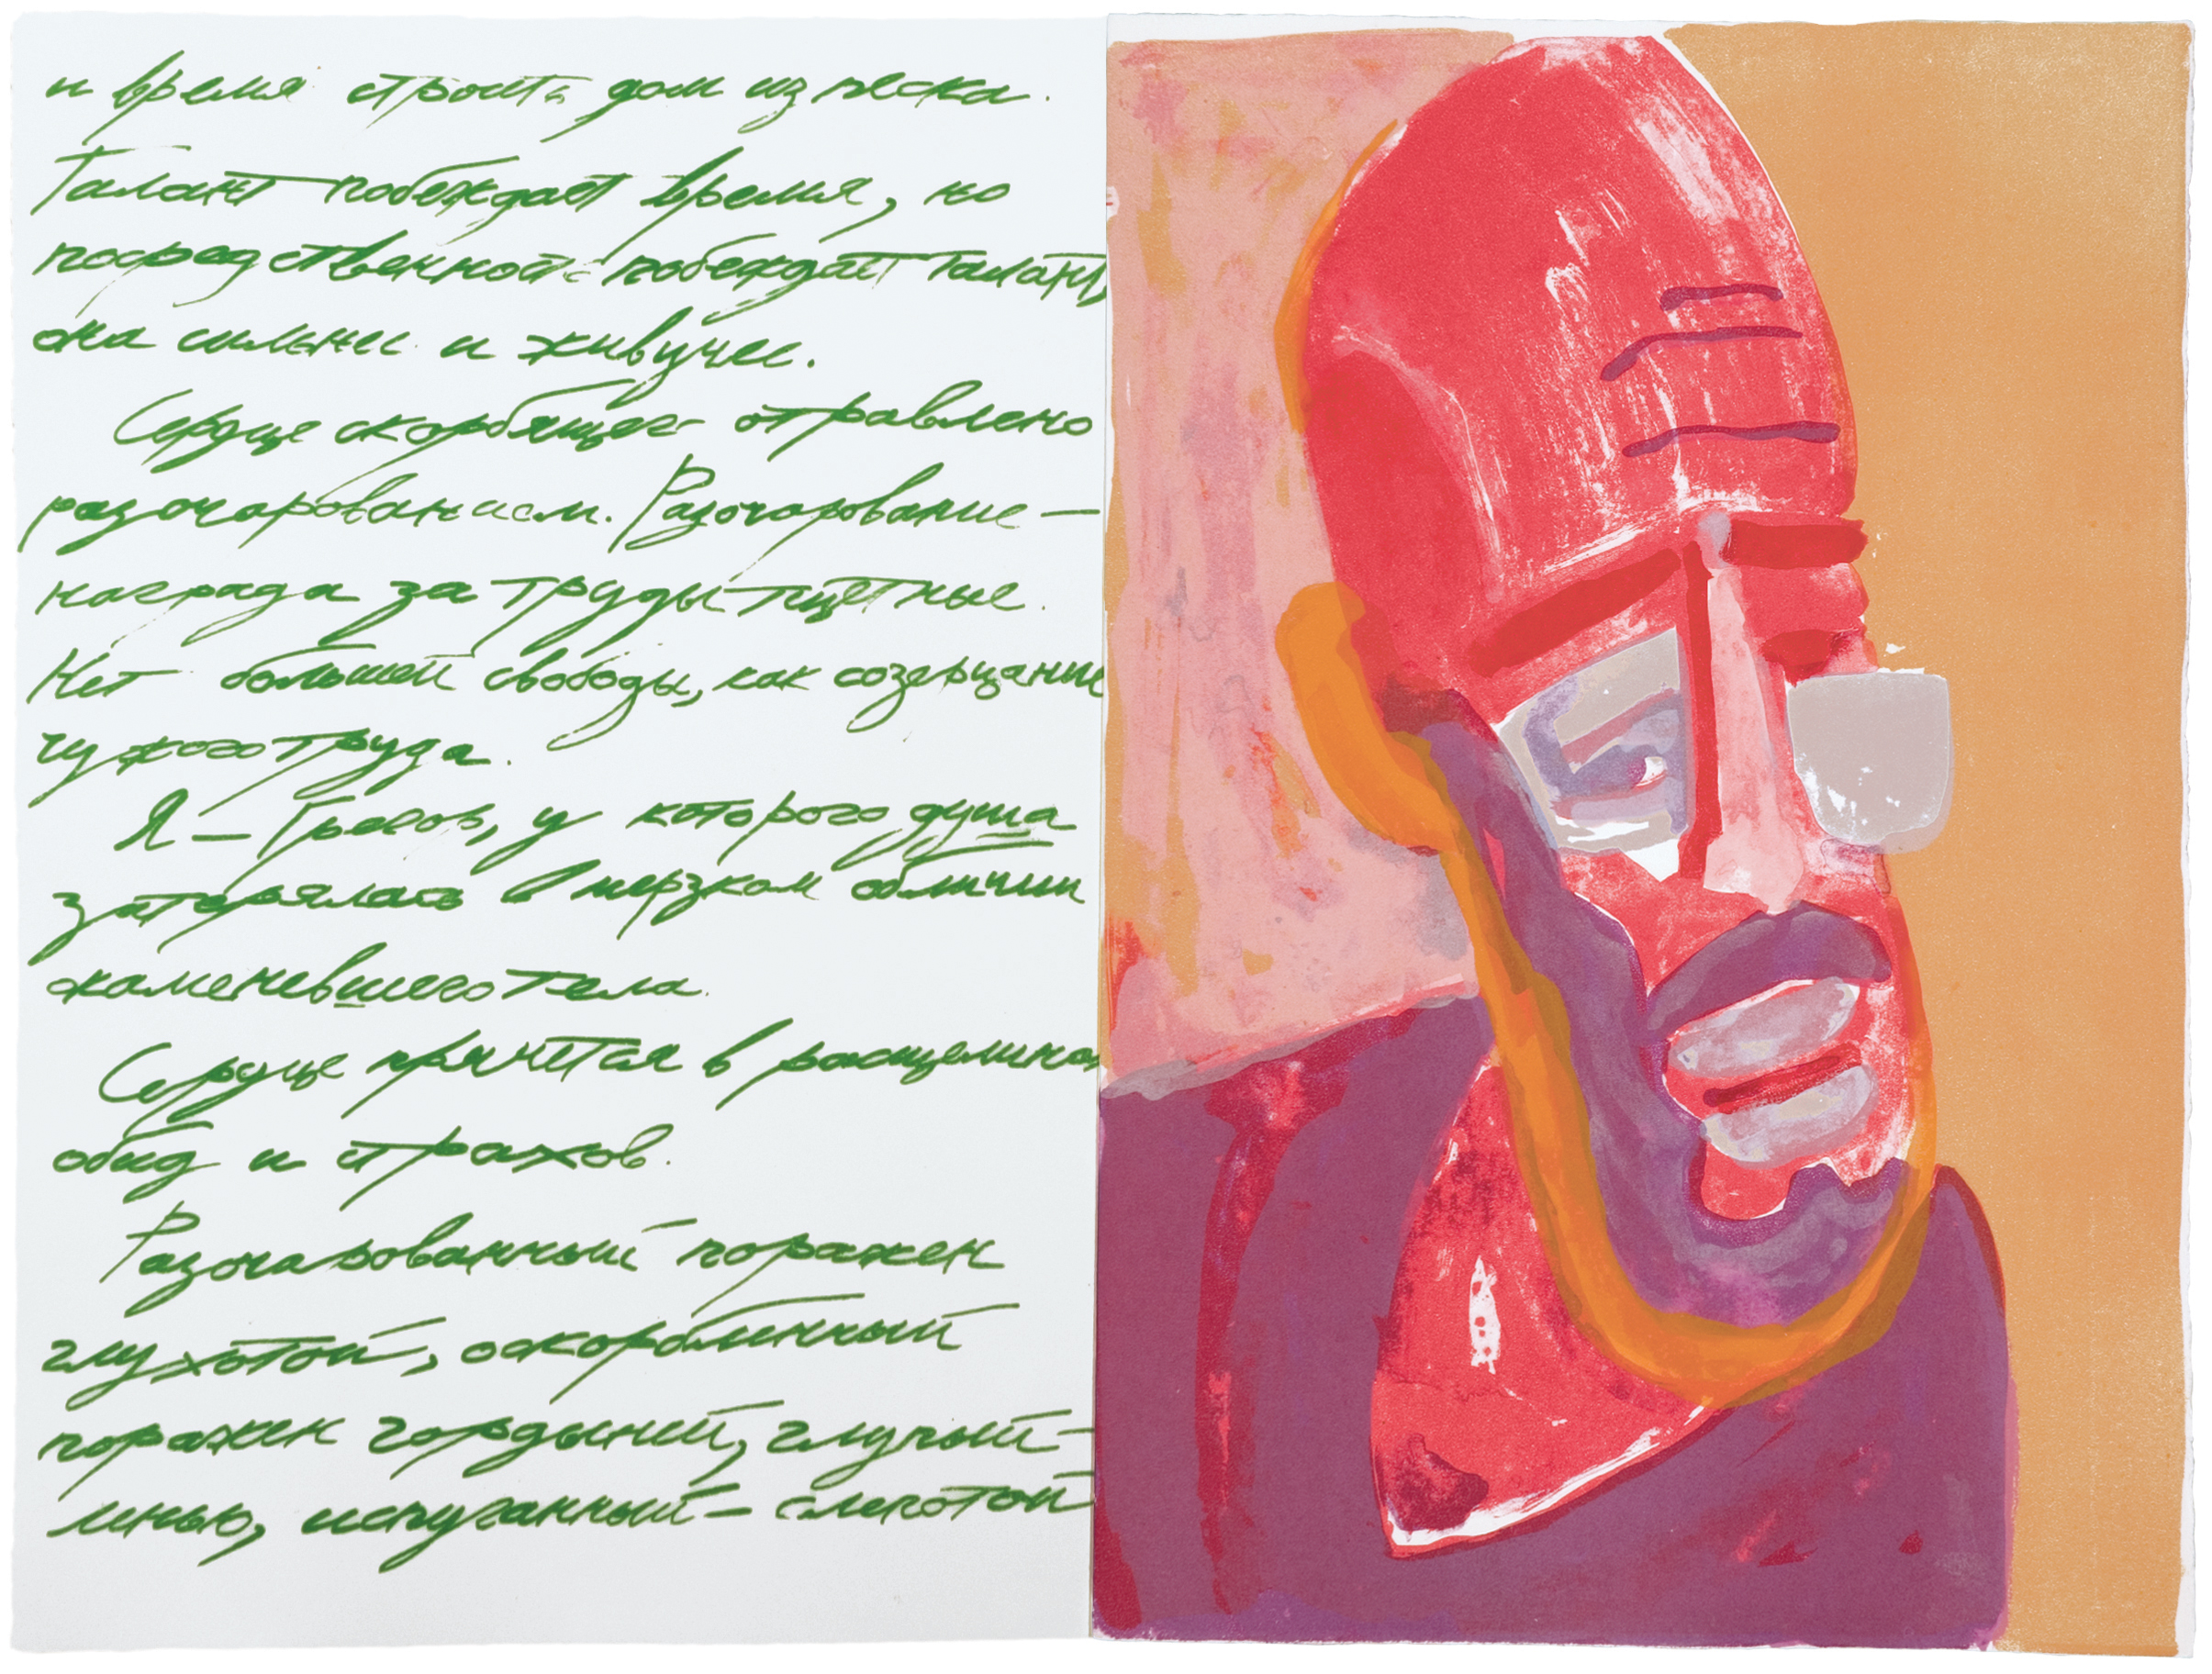 и время строить дом из песка.
Талант побеждает время, но
посредственность побеждает талант,
она сильнее и живучее.
Сердце скорбящего отравлено
разочарованием. Разочарование —
награда за труды тщетные.
Нет большей свободы, как созерцание
чужого труда.
Я — , у которого душа
затерялась в мерзком обличии
каменевшего тела.
Сердце прячется в расщелинах
обид и страхов.
Разочарованный поражен
глухотой, оскорбленный
поражен гордыней, глупый —
ленью, испуганный — слепотой